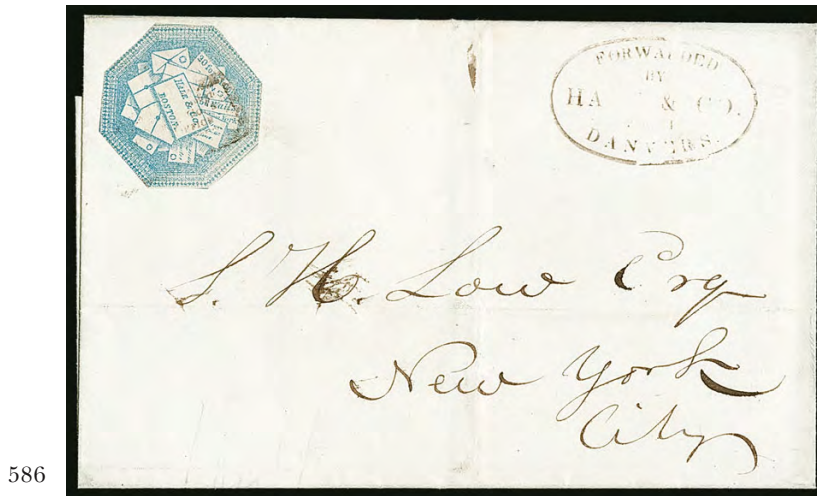 HALE & Co.
BOSTON
FORWARDED
BY
HA & CO.
DANVERS.
S. H. Low Esq
New York
City
586